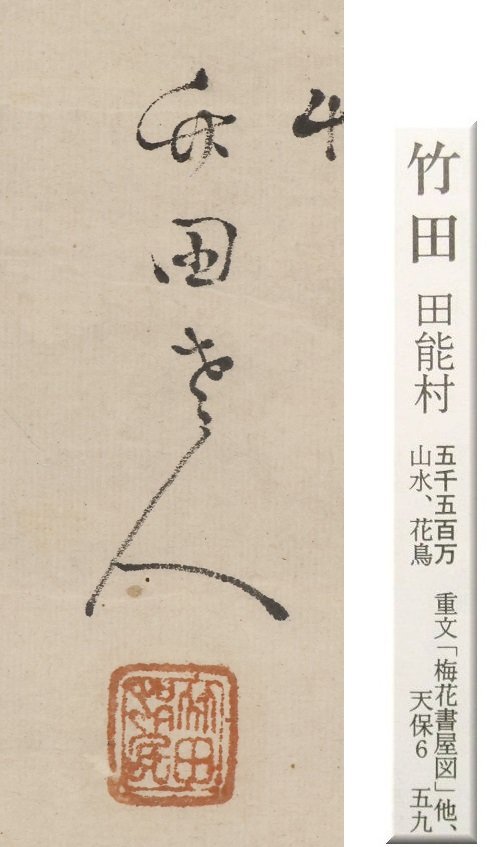 竹田 田能村
五千五百万
山水、花鳥
重文「梅花書屋図」他、
天保6 五九
竹田老人
竹田